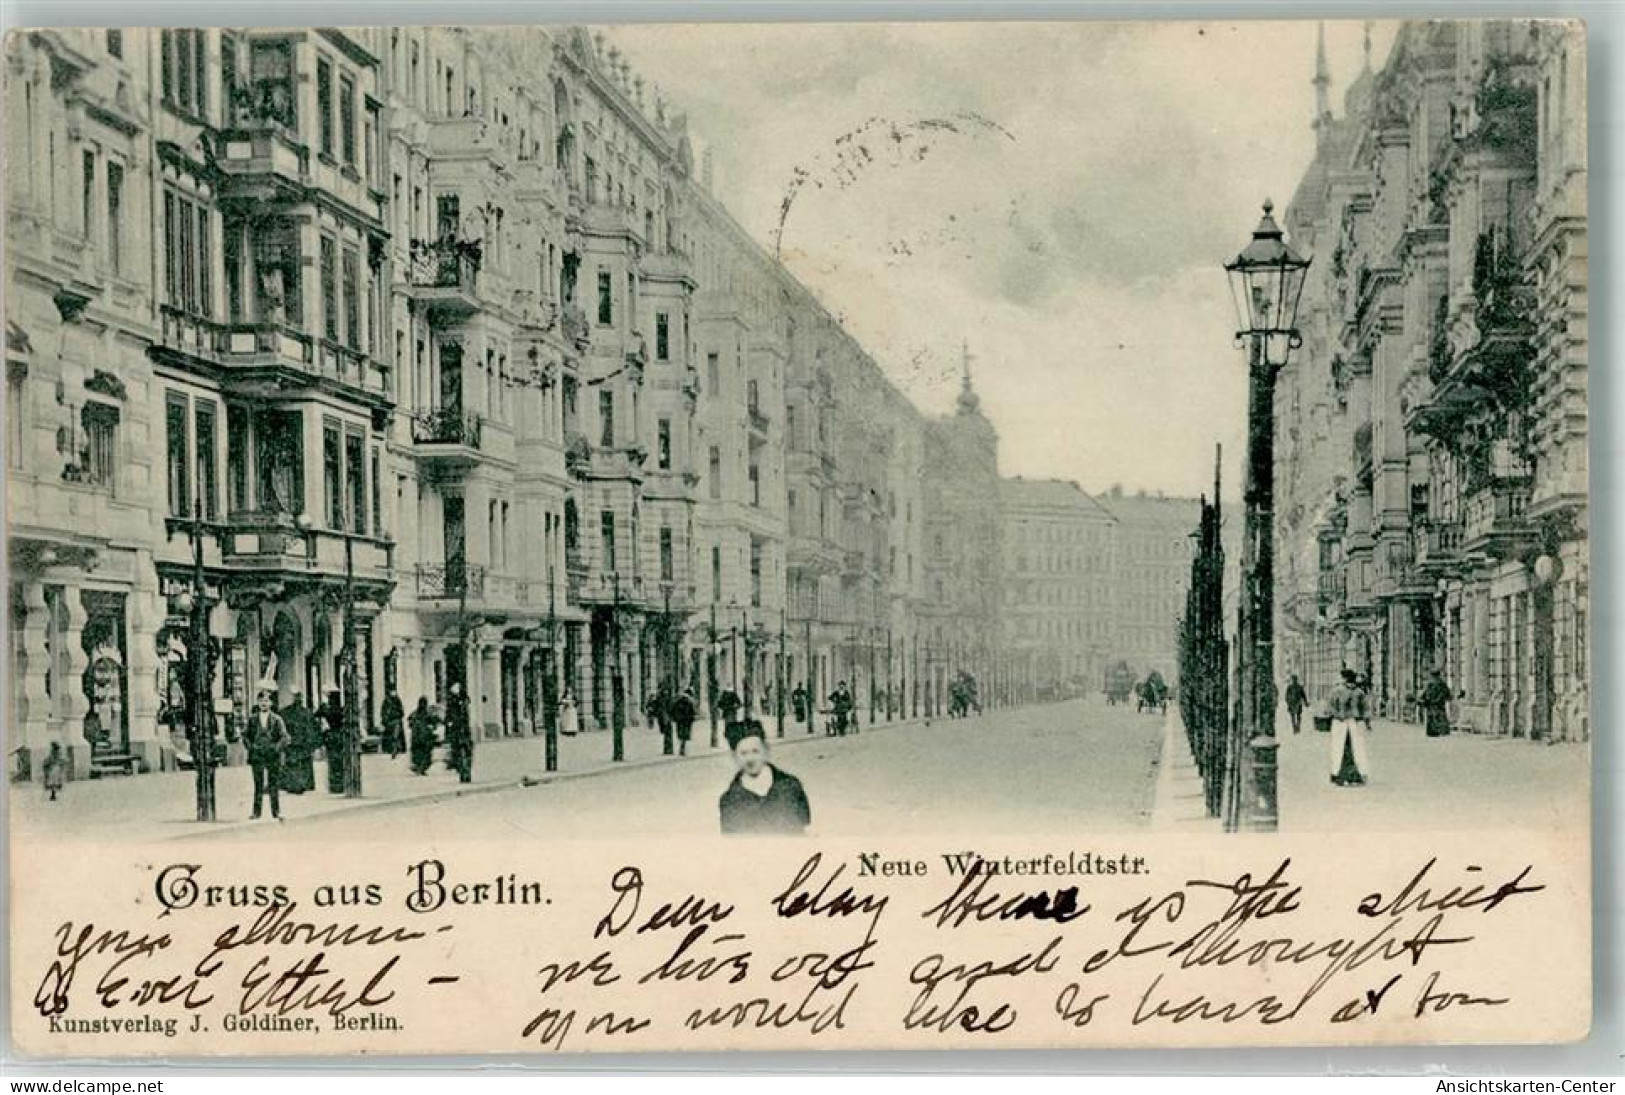 Neue Winterfeldtstr.
Gruss aus Berlin.
Dear Clay Here is the street
we live on and I thought
you would like to have it for
your album-
As Ever Ethel -
Kunstverlag J. Goldiner, Berlin.
delcampe.net
Ansichtskarten-Center